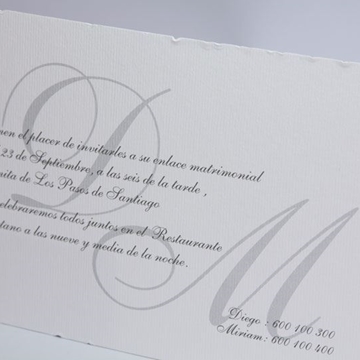 D M
el placer de invitarles a su enlace matrimonial
23 de Septiembre, a las seis de la tarde ,
de Los Pasos de Santiago
celebraremos todos juntos en el Restaurante
a las nueve y media de la noche.
Diego : 600 100 300
Miriam: 600 100 400